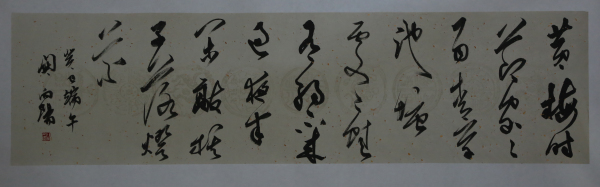 黄梅时
节家々
雨青草
池塘
處々蛙
有约不来
过夜半
闲敲棋
子落燈
花
癸巳端午